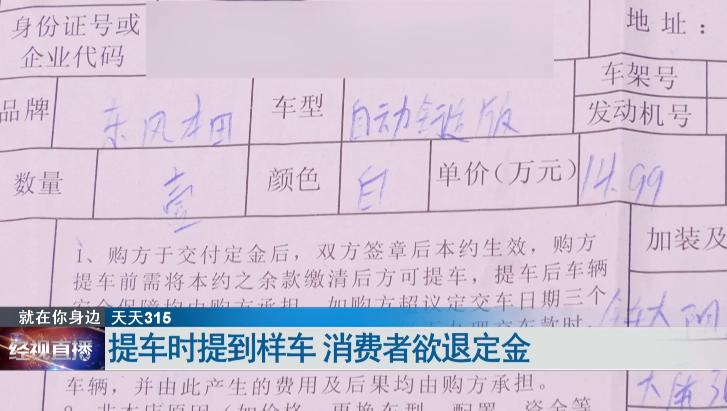 身份证号或
企业代码
地址：
品牌 东风本田 车型 自动舒适版 车架号
发动机号
数量 壹 颜色 白 单价（万元） 14.99
1、购方于交付定金后，双方签章后本约生效，购方
提车前需将本约之余款缴清后方可提车，提车后车辆
加装及
安全保障均由购方承担。如购方超议定交车日期三个
就在你身边 天天315
经视直播
提车时提到样车 消费者欲退定金
车辆，并由此产生的费用及后果均由购方承担。